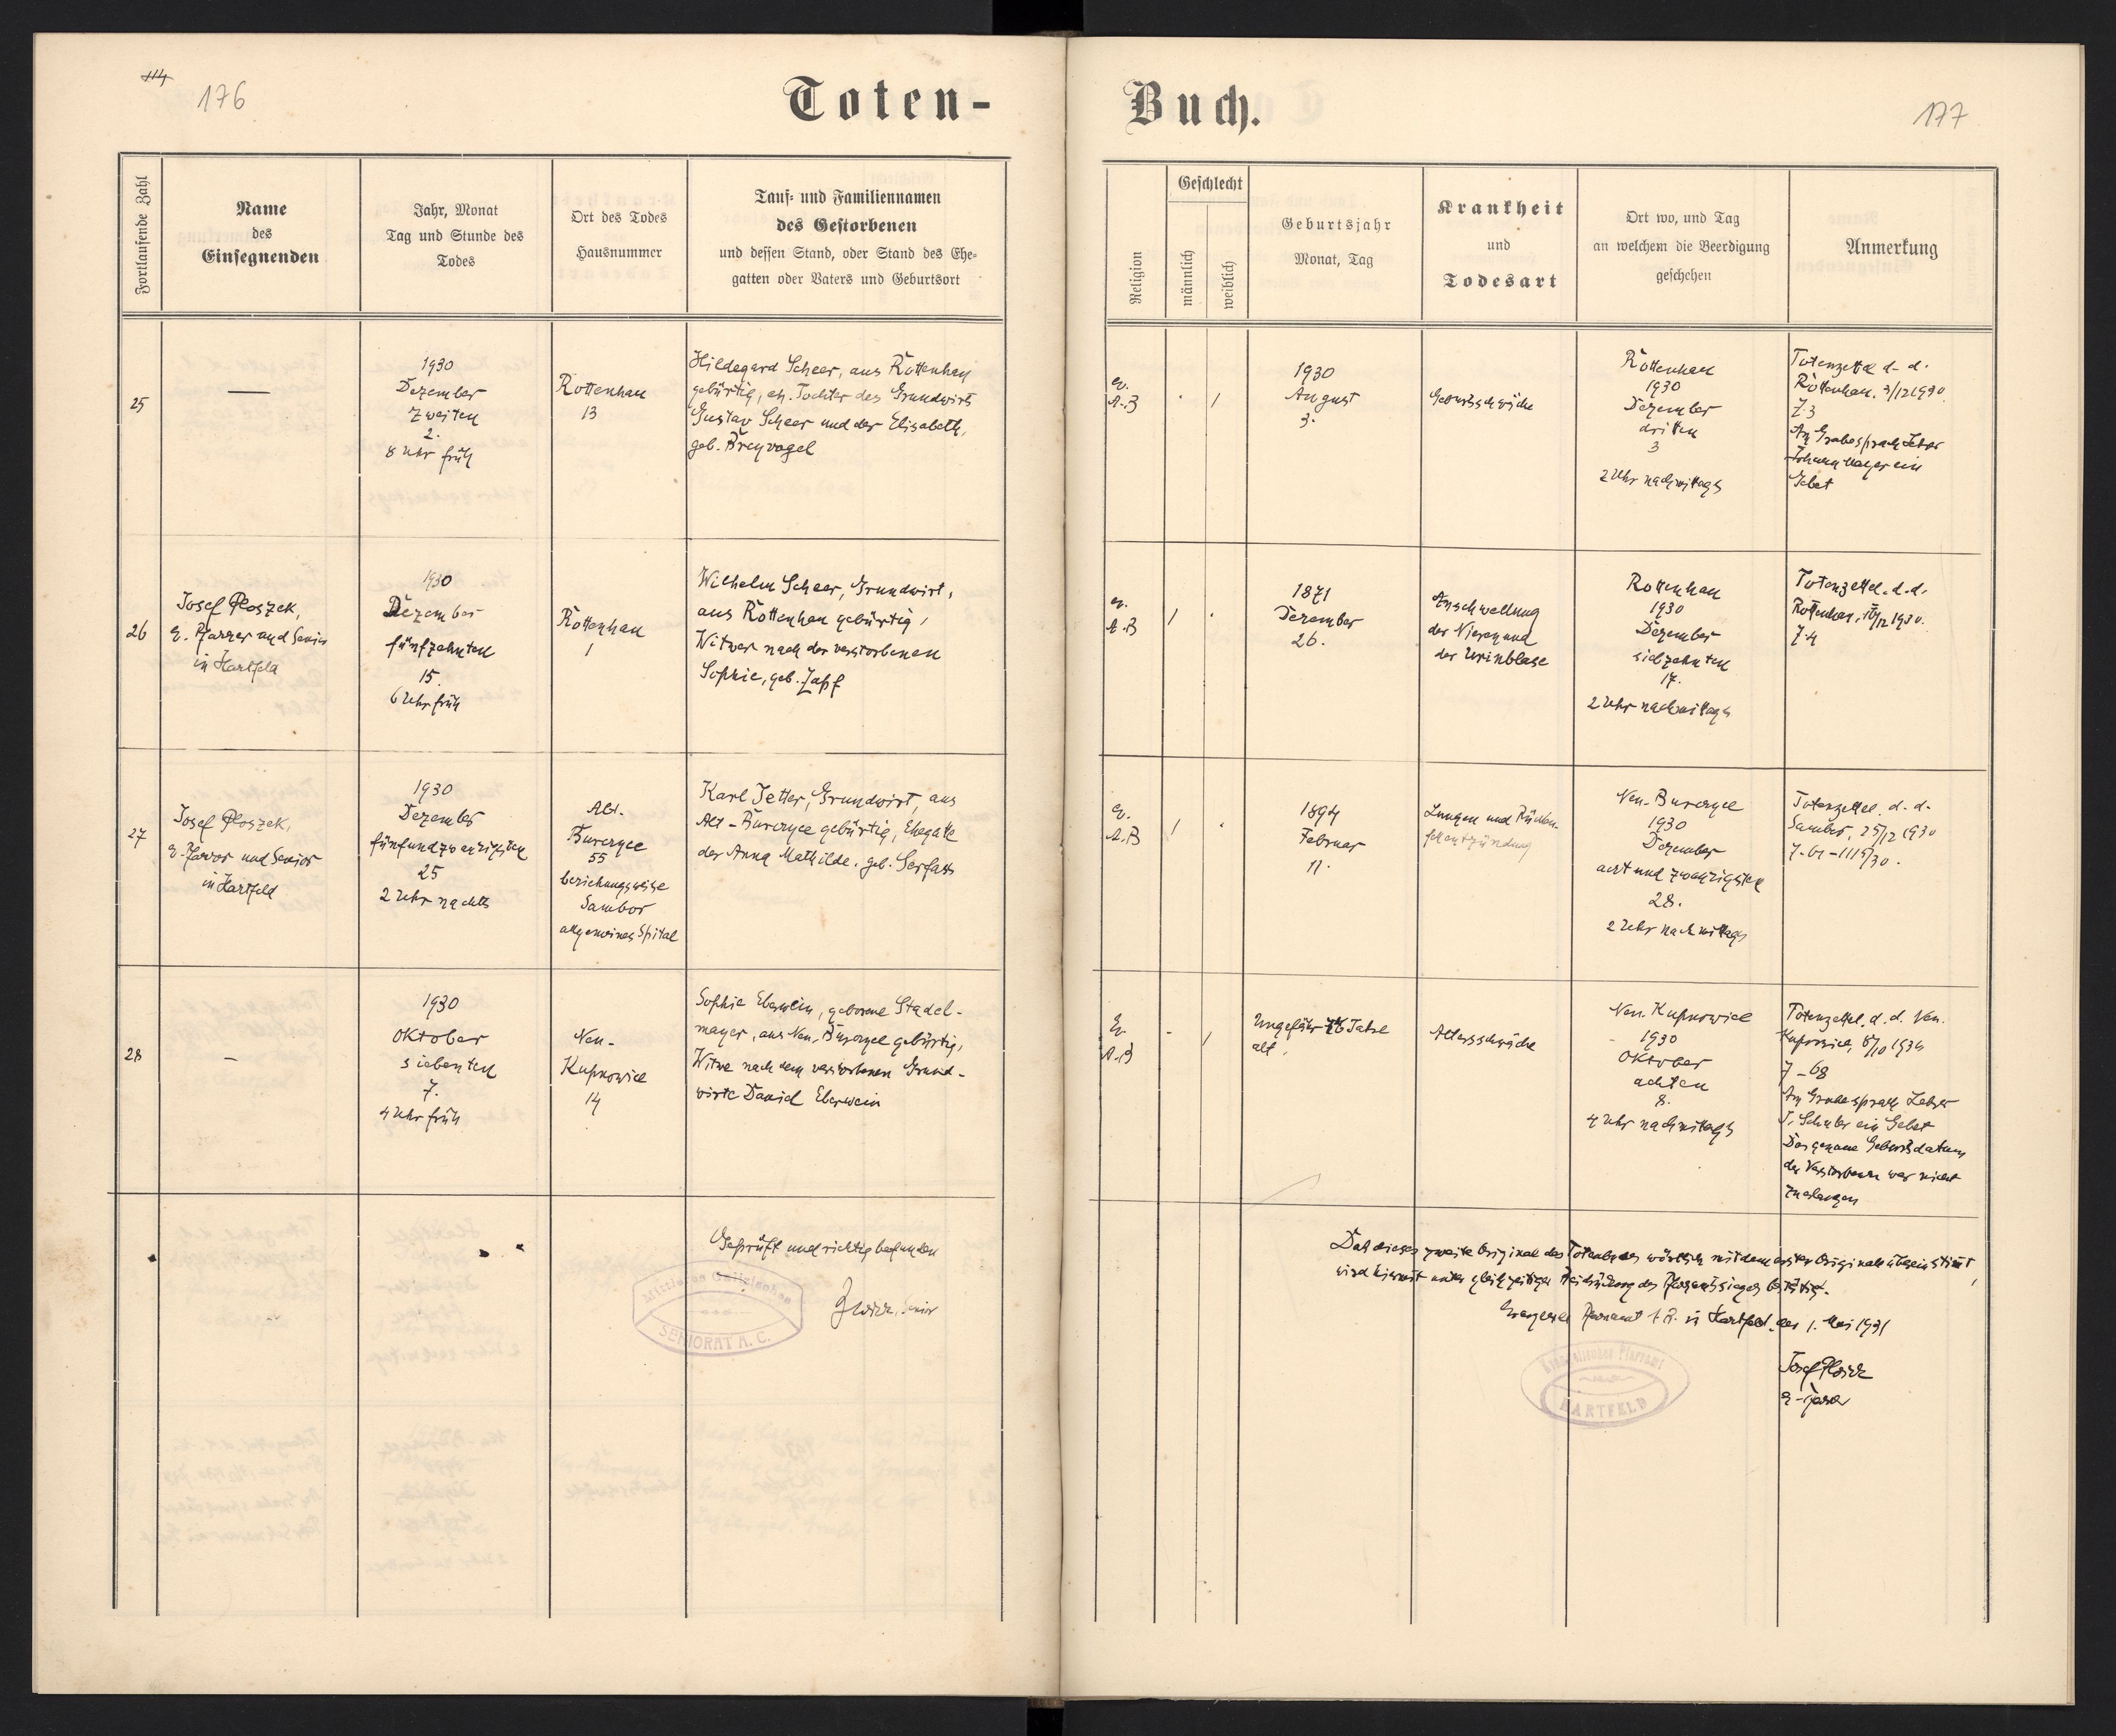 114
176
Toten-
Fortlaufende Zahl
Name
des
Einsegnenden
Jahr, Monat
Tag und Stunde des
Todes
Ort des Todes
Hausnummer
Tauf- und Familiennamen
des Gestorbenen
und dessen Stand, oder Stand des Ehe-
gatten oder Vaters und Geburtsort
25
—
1930
Dezember
zweiten
2.
8 Uhr früh
Rottenhan
13
Hildegard Scheer, aus Rottenhan
gebürtig, eh. Tochter des Grundwirts
Gustav Scheer und der Elisabeth,
geb. Breyvogel
26
Josef Ploszek,
e. Pfarrer und Senior
in Hartfeld
1930
Dezember
fünfzehnten
15.
6 Uhr früh
Rottenhan
1
Wilhelm Scheer, Grundwirt,
aus Rottenhan gebürtig,
Witwer nach der verstorbenen
Sophie, geb. Zapf
27
Josef Ploszek,
e. Pfarrer und Senior
in Hartfeld
1930
Dezember
fünfundzwanzigsten
25
2 Uhr nachts
Alt-
Burczyce
55
beziehungsweise
Sambor
allgemeines Spital
Karl Jetter, Grundwirt, aus
Alt-Burczyce gebürtig, Ehegatte
der Anna Mathilde, geb. Serfass
28
—
1930
Oktober
siebenten
7.
4 Uhr früh
Neu-
Kupnowice
14
Sophie Eberwein, geborene Stadel-
mayer, aus Neu-Burczyce gebürtig,
Witwe nach dem verstorbenen Grund-
wirte David Eberwein
Geprüft und richtig befunden
Senior
Mittleren Galizischen
SENIORAT A. C.
Buch.
177
Religion
Geschlecht
männlich
weiblich
Geburtsjahr
Monat, Tag
Krankheit
und
Todesart
Ort wo, und Tag
an welchem die Beerdigung
geschehen
Anmerkung
ev.
A.B
1
1930
August
3.
Geburtsschwäche
Rottenhan
1930
Dezember
dritten
3
2 Uhr nachmittags
Totenzettel d. d.
Rottenhan, 3/12 1930
Z. 3
Am Grabe sprach Lehrer
Johann Mayer ein
Gebet
ev.
A.B
1
1871
Dezember
26.
Anschwellung
der Nieren und
der Urinblase
Rottenhan
1930
Dezember
siebzehnten
17.
2 Uhr nachmittags
Totenzettel. d. d.
Rottenhan, /12 1930.
Z. 4
ev.
A.B
1
1894
Februar
11.
Lungen und
Neu-Burczyce
1930
Dezember
acht und zwanzigsten
28.
2 Uhr nachmittags
Totenzettel. d. d.
Sambor, 25/12 1930
Ev.
A.B
1
Ungefähr 76 Jahre
alt.
Altersschwäche
Neu-Kupnowice
1930
Oktober
achten
8.
4 Uhr nachmittags
Totenzettel. d. d. Neu-
Kupnowice, 8/10 1930
Z-68
Am Grabe sprach Lehrer
J. Schuler ein Gebet
Das genaue Geburtsdatum
der Verstorbenen war nicht
zu erlangen
Daß dieses zweite Original des Totenbuches wörtlich mit dem ersten Originale übereinstimmt,
wird hiermit unter gleichzeitiger Beidrückung des Pfarramtssiegels bestätigt.
Evangelisches Pfarramt A.B. in Hartfeld, den 1. Mai 1931
Evangelisches Pfarramt
HARTFELD
Josef Ploszek
e. Pfarrer